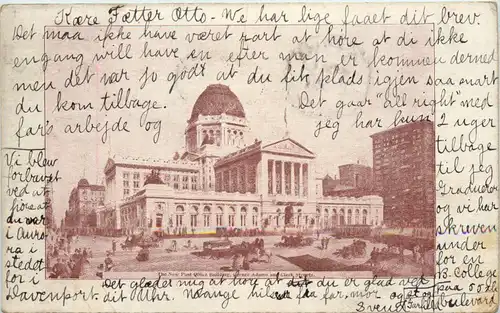 Kære Fætter Otto - We har lige faaet dit brev.
Det maa ikke have været rart at høre at di ikke
engang will have en efter man er kommen derned
men det var jo godt at du fik plads igjen saa snart
du kom tilbage. Det gaar "all right" med
far's arbejde og jeg har kun 2 uger
tilbage
til jeg
Graduerer
og vi har
skreven
under
for en
B. College
paa 00de
bulevard
Vi blav
forbavset
ved at
høre at
du var
i Auro
ra i
stedet
for i
Davenport. dit Uhr. Mange hilsener fra far, mor og
Det glæder mig at høre at du er glad ved
Svend
The New Post Office Building, Corner Adams and Clark Streets.